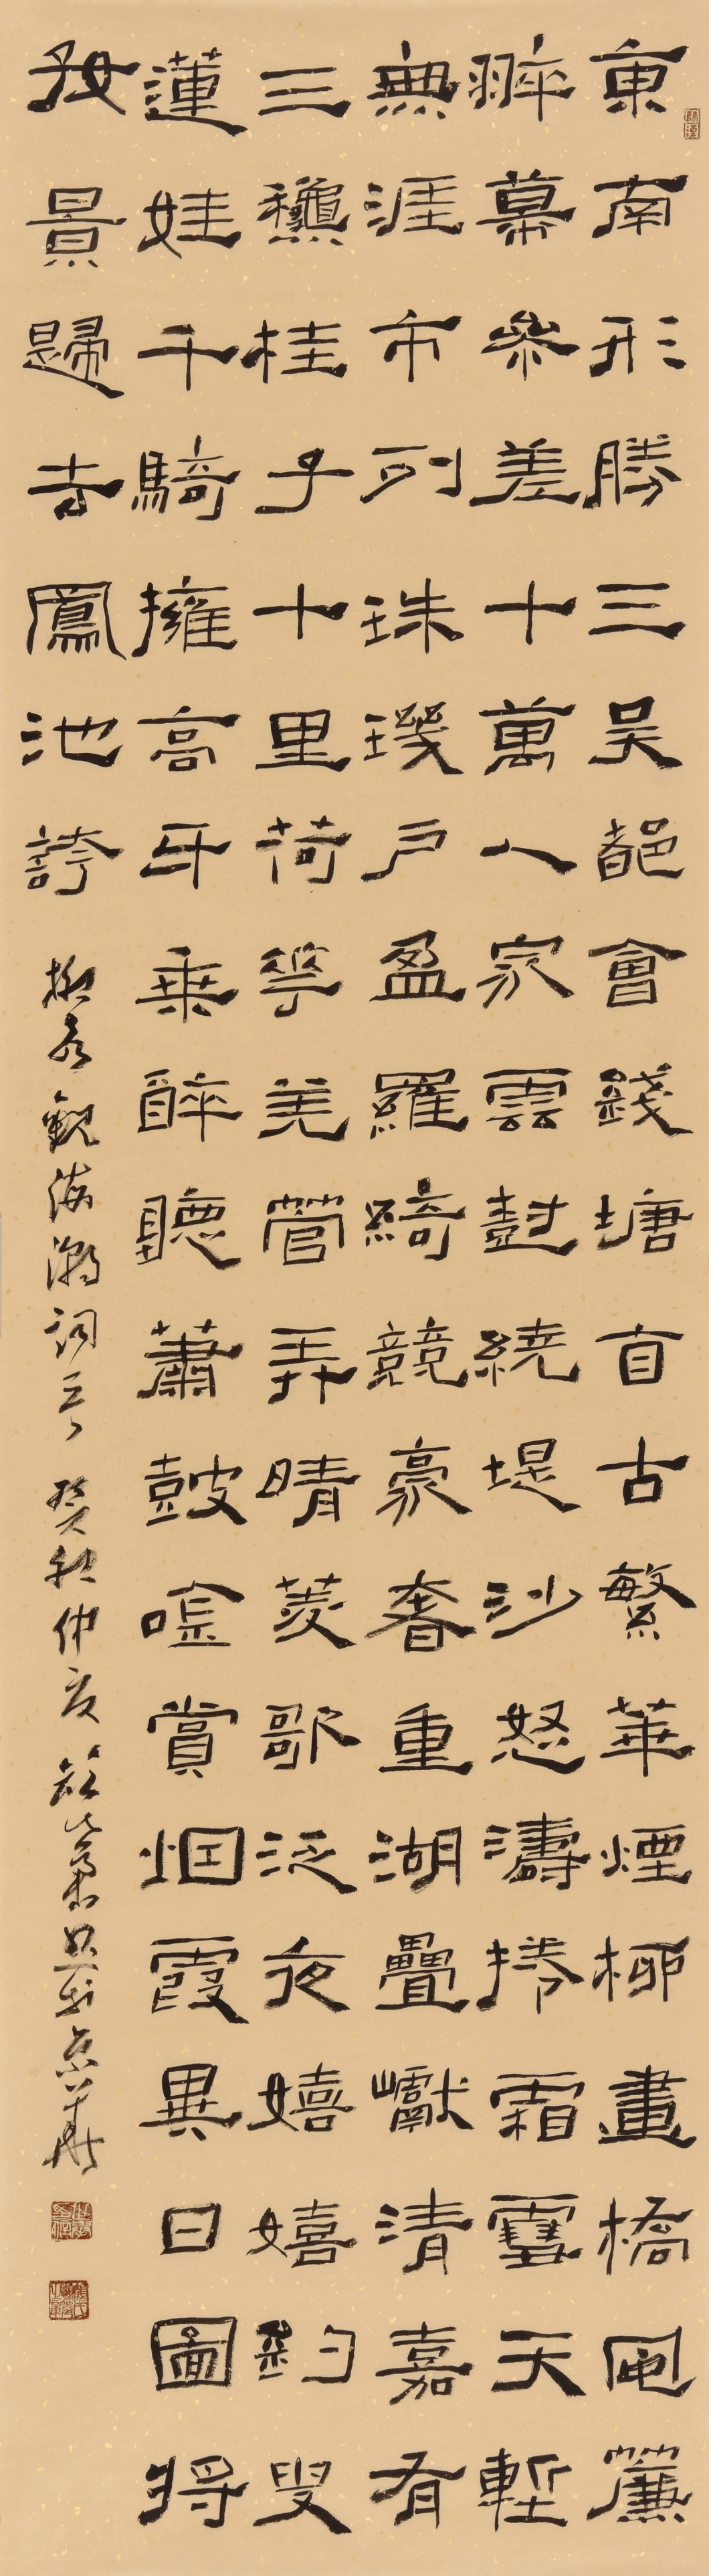 東南形勝三吳都會錢塘自古繁華煙柳畫橋風簾
翠幕參差十萬人家雲樹繞堤沙怒濤捲霜雪天塹
無涯市列珠璣戶盈羅綺競豪奢重湖疊巘清嘉有
三龝桂子十里荷花羌管弄晴菱歌泛夜嬉嬉釣叟
蓮娃千騎擁高牙乘醉聽蕭鼓吟賞烟霞異日圖將
好景歸去鳳池誇
柳永觀海潮詞 癸卯仲夏